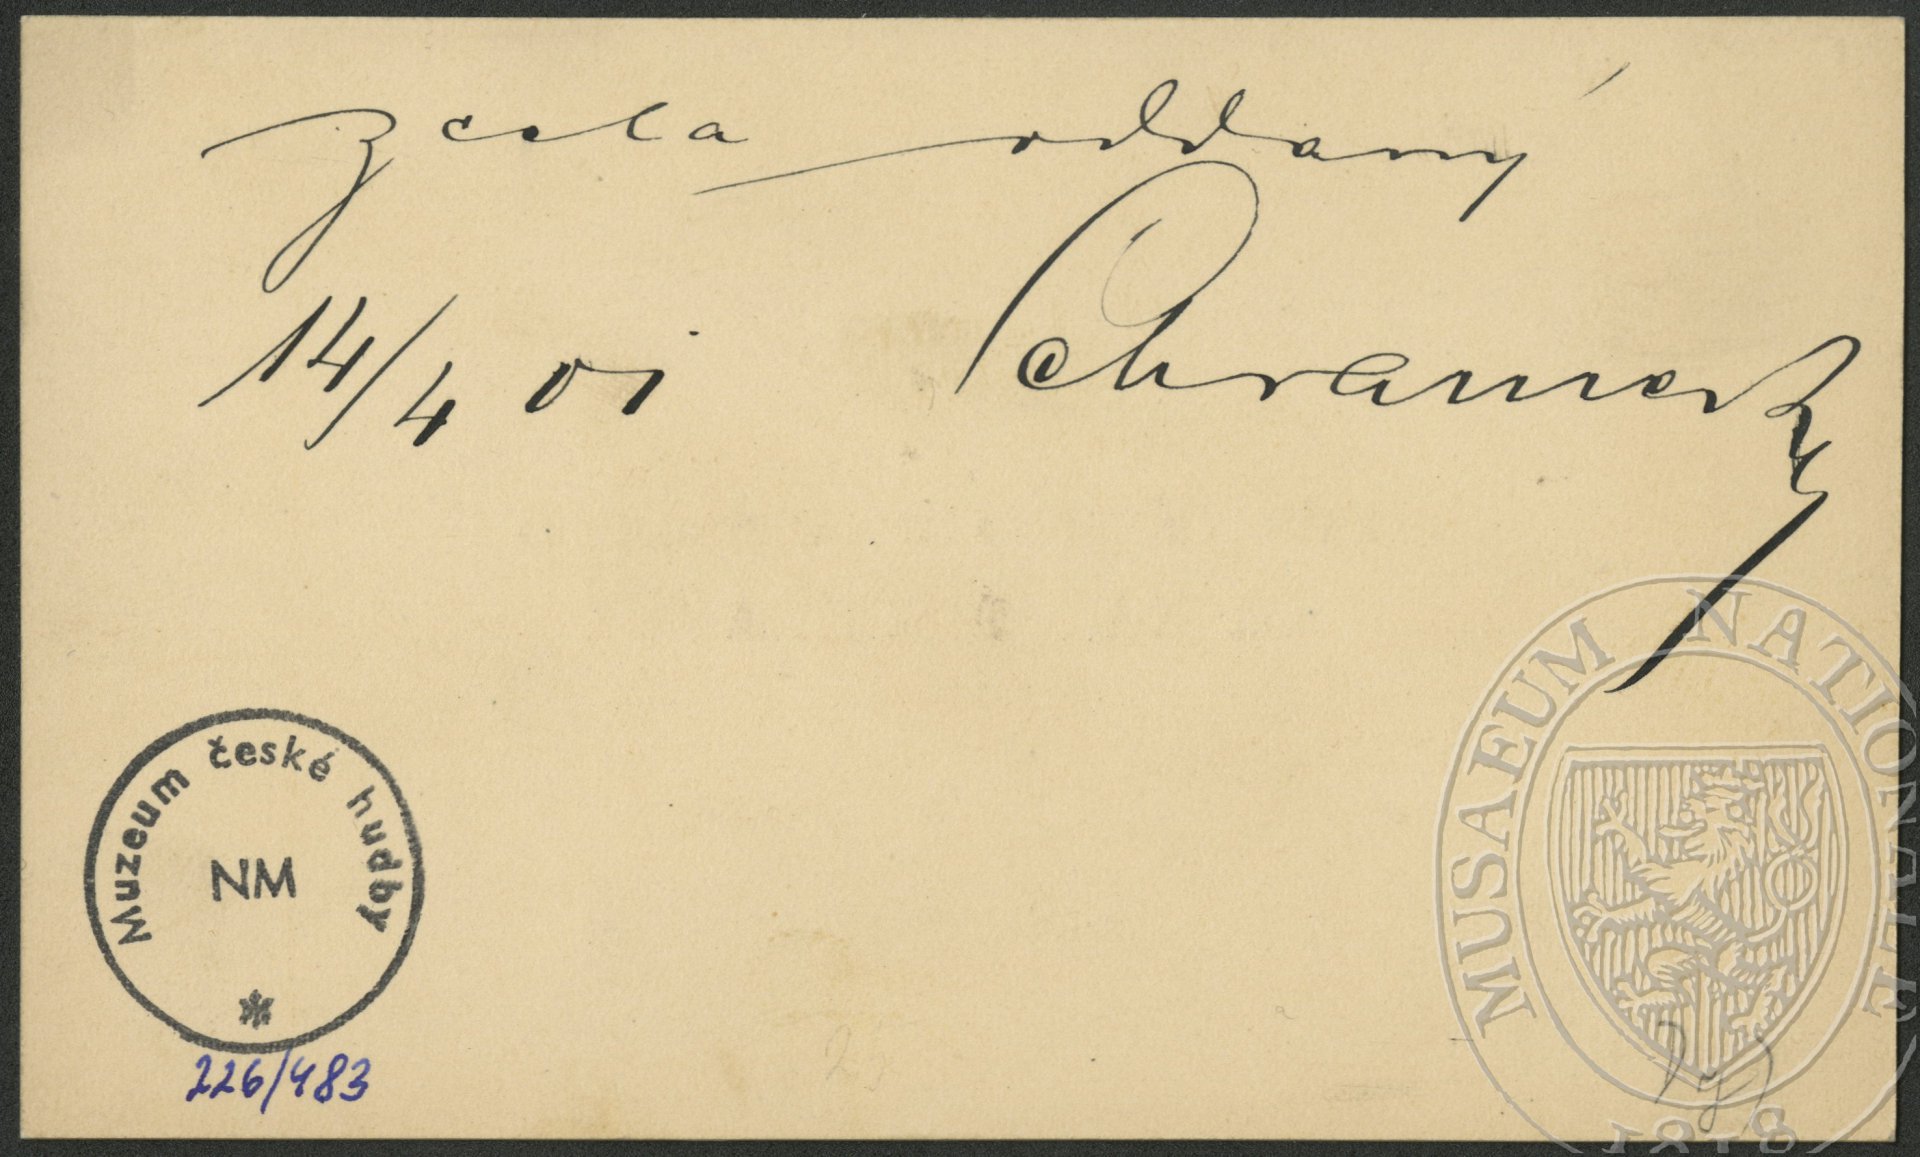 zcela oddaný
14/4 01 Schramek
Muzeum české hudby
NM
226/483
MUSAEUM NATIONALE
1818